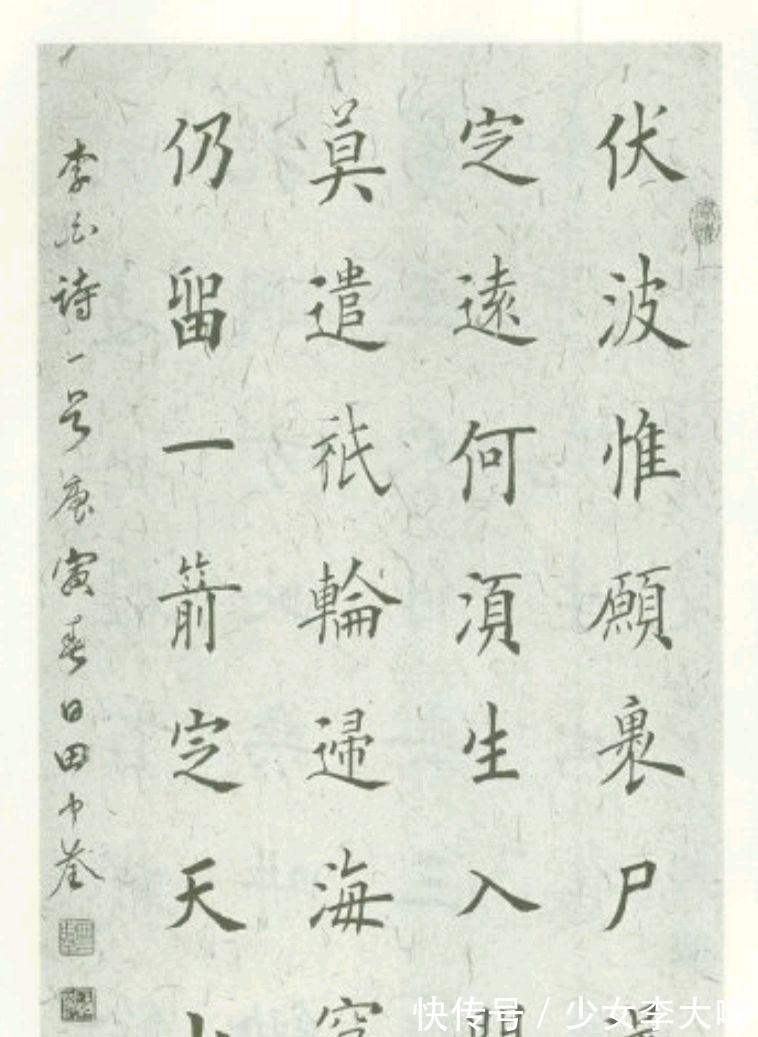 伏波惟願裹尸還
定遠何須生入關
莫遣祇輪歸海窟
仍留一箭定天山
李白詩一首庚寅春日田中荃
快传号 / 少女李大